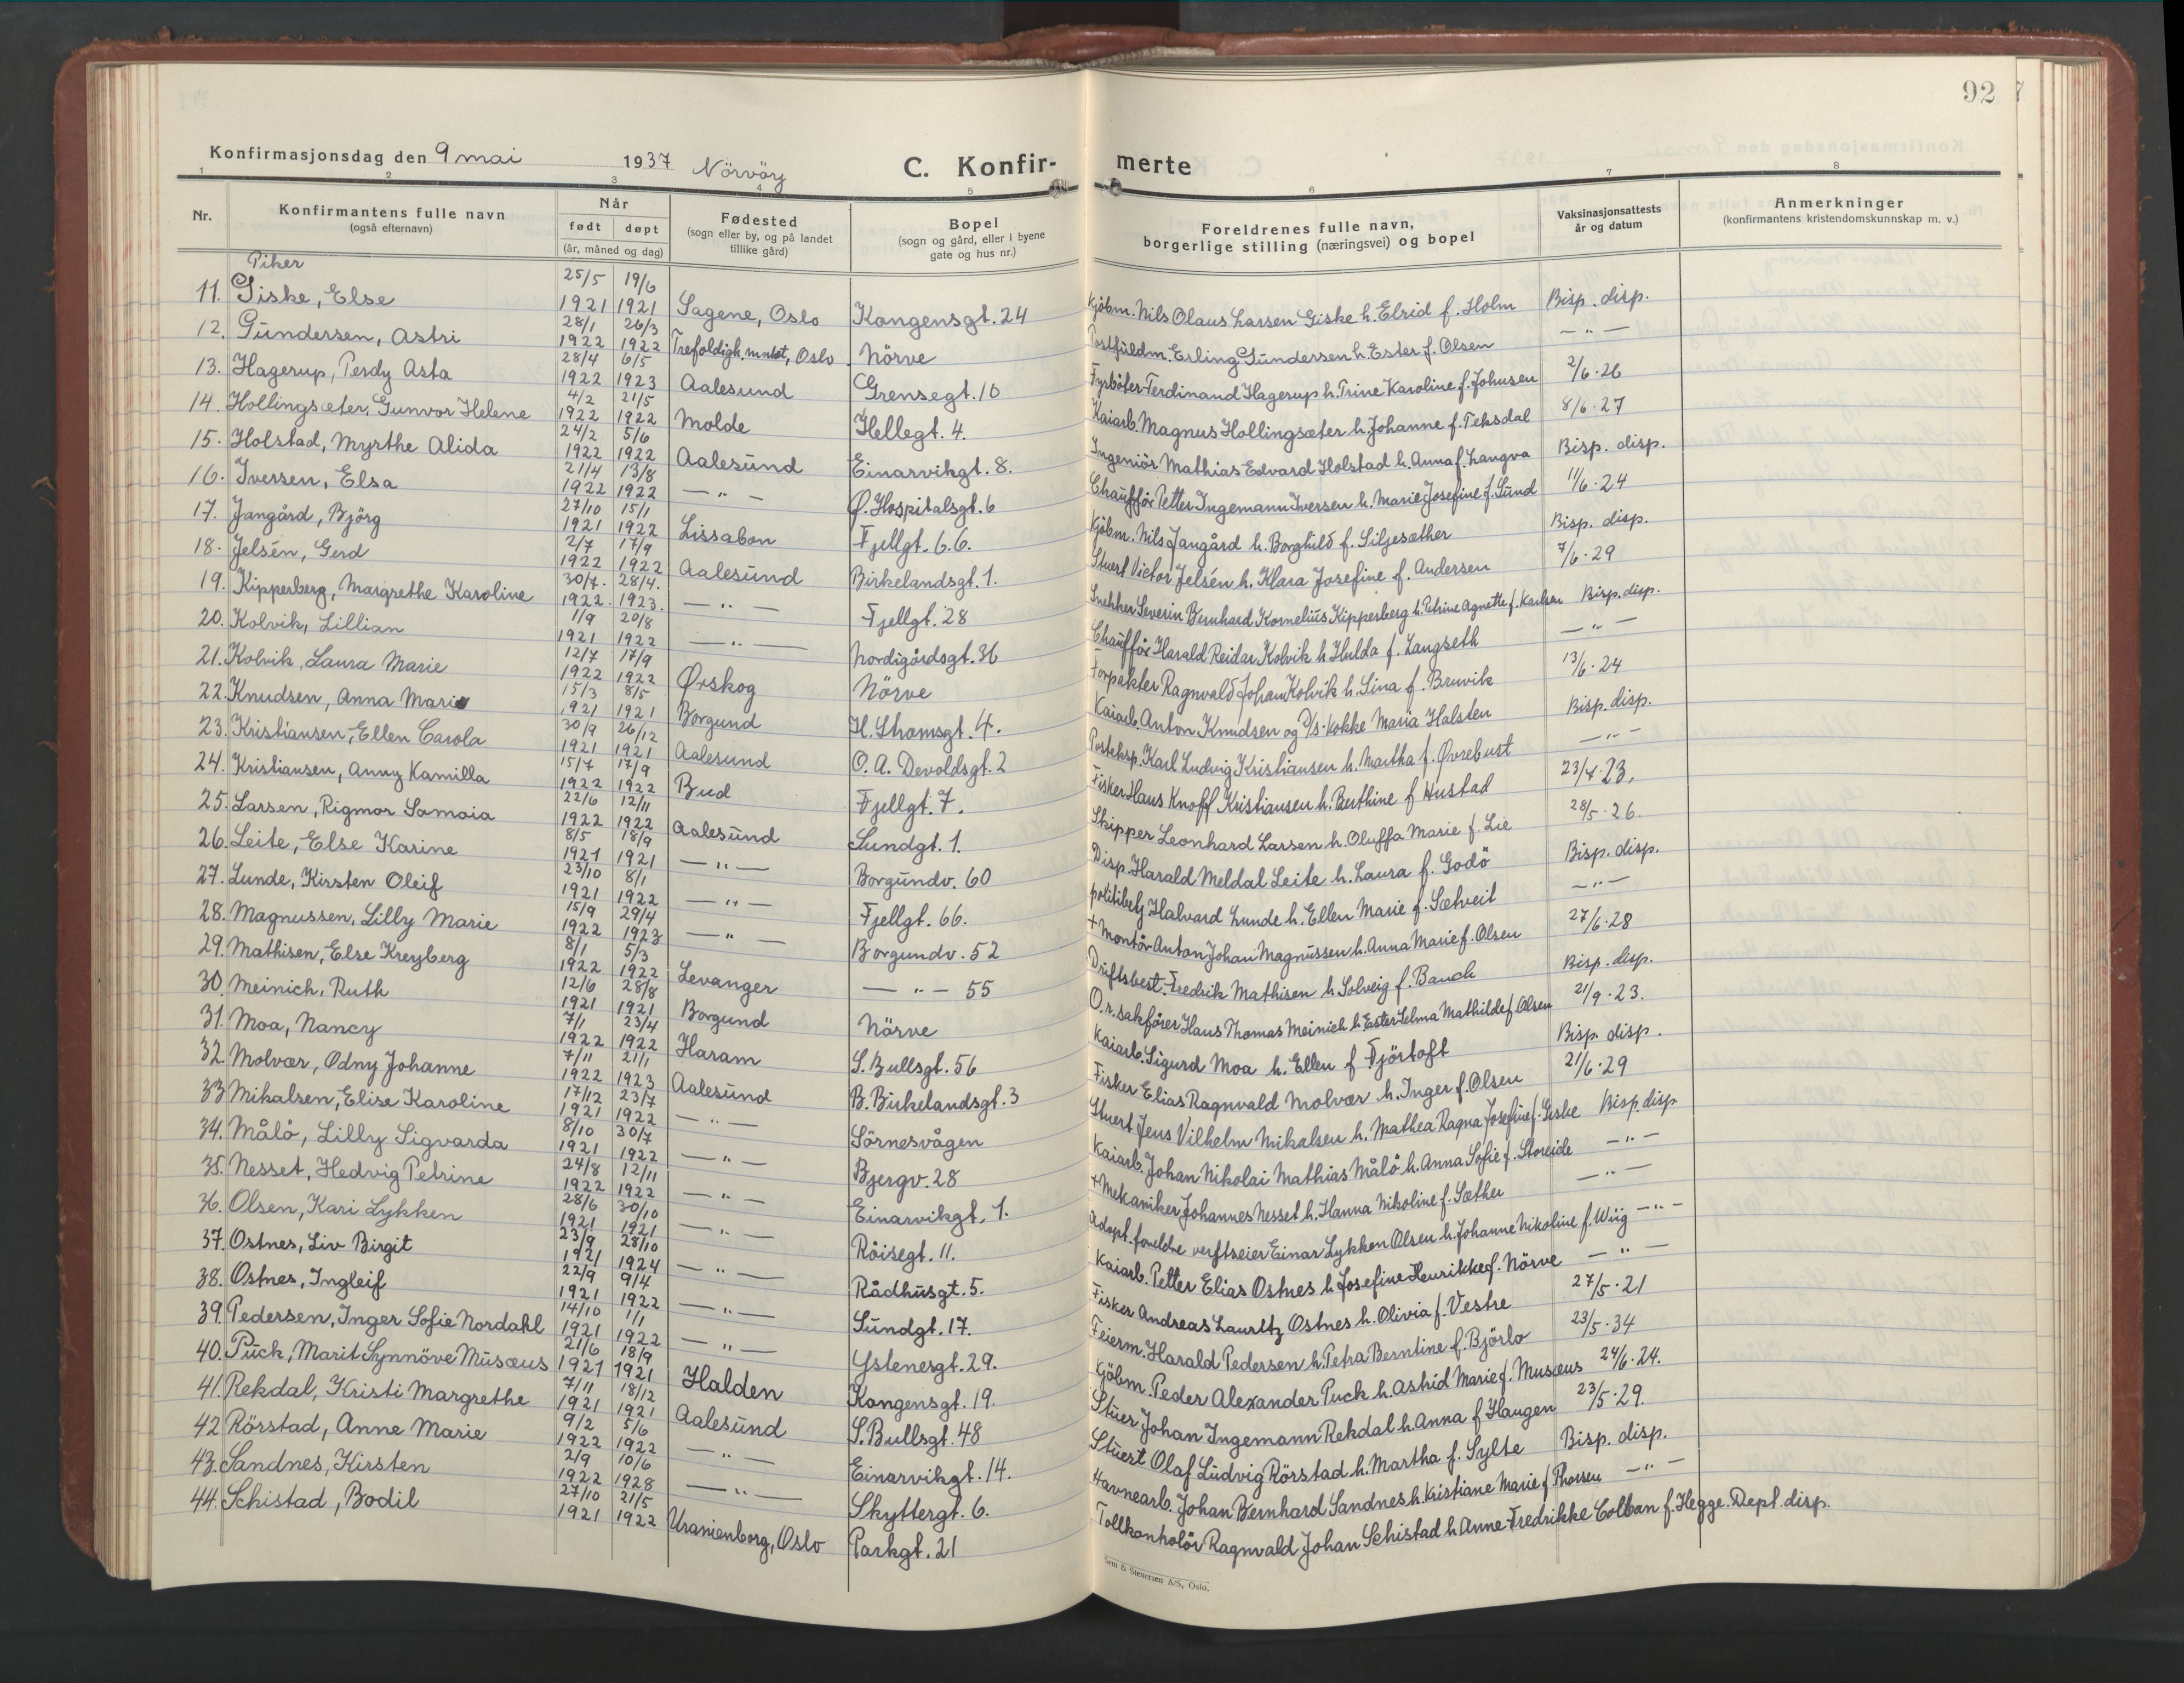 92
Konfirmasjonsdag den 9 mai 1937 Nörvöy C. Konfirmerte
1 2 3 4 5 6 7 8
Nr. Konfirmantens fulle navn (også efternavn) Når født døpt (år, måned og dag) Fødested (sogn eller by, og på landet tillike gård) Bopel (sogn og gård, eller i byene gate og hus nr.) Foreldrenes fulle navn, borgerlige stilling (næringsvei) og bopel Vaksinasjonsattests år og datum Anmerkninger (konfirmantens kristendomskunnskap m. v.)
Piker
11. Giske, Else 25/5 1921 19/6 1921 Sagene, Oslo Kongensgt. 24 Kjöbm. Nils Olaus Larsen Giske h. Elrid f. Holm Bisp. disp.
12. Gundersen, Astri 28/1 1922 26/3 1922 Trefoldigh. Oslo Nörve Postfuldm. Erling Gundersen h. Ester f. Olsen — " —
13. Hagerup, Perdy Asta 28/4 1922 6/5 1923 Aalesund Grensegt. 10 Fyrböter Ferdinand Hagerup h. Trine Karoline f. Johnsen 2/6·26
14. Hollingsæter, Gunvor Helene 4/2 1922 21/5 1922 Molde Hellegt. 4. Kaiarb. Magnus Hollingsæter h. Johanne f. Teksdal 8/6·27
15. Holstad, Myrthe Alida 24/2 1922 5/6 1922 Aalesund Einarvikgt. 8. Ingeniör Mathias Edvard Holstad h. Anna f. Langva Bisp. disp.
16. Iversen, Elsa 21/4 1922 13/8 1922 — " — Ø. Hospitalsgt. 6 Chaufför Petter Ingemann Iversen h. Marie Josefine f. Sund 11/6·24
17. Jangård, Björg 27/10 1921 15/1 1922 Lissabon Fjellgt. 6.6. Kjöbm. Nils Jangård h. Borghild f. Siljesæther Bisp. disp.
18. Jelsén, Gerd 2/7 1922 17/9 1922 Aalesund Birkelandsgt. 1. Stuert Victor Jelsén h. Klara Josefine f. Andersen 7/6·29
19. Kipperberg, Margrethe Karoline 30/7. 1922. 28/4. 1923. — " — Fjellgt. 28 Snekker Severin Bernhard Kornelius Kipperberg h. Petrine Agnette f. Karlsen Bisp. disp.
20. Kolvik, Lillian 1/9 1921 20/8 1922 — " — Nordigårdsgt. 36 Chaufför Harald Reidar Kolvik h Hulda f. Langseth — " —
21. Kolvik, Laura Marie 12/7 1922 17/9 1922 Ørskog Nörve Forpakter Ragnvald Johan Kolvik h. Lina f. Bruvik 13/6·24
22. Knudsen, Anna Marie 15/3 1921 8/5 1921 Borgund H. Stromsgt. 4. Kaiarb. Anton Knudsen og D/s. kokke Maria Halsten Bisp. disp.
23. Kristiansen, Ellen Carola 30/9 1921 26/12 1921 Aalesund O. A. Devoldsgt. 2 Posteksp. Karl Ludvig Kristiansen h. Martha f. Øvrebust — " —
24. Kristiansen, Anny Kamilla 15/7 1922 17/9 1922 Bud Fjellgt. 7. Fisker Hans Knoff Kristiansen h. Berthine f Hustad 23/4·23.
25. Larsen, Rigmor Samoia 22/6 1922 12/11 1922 Aalesund Sundgt. 1. Skipper Leonhard Larsen h. Oluffa Marie f. Lie 28/5·26.
26. Leite, Else Karine 8/5 1921 18/9 1921 — " — Borgundv. 60 Disp. Harald Meldal Leite h. Laura f. Godö Bisp. disp.
27. Lunde, Kirsten Oleif 23/10 1921 8/1 1922 — " — Fjellgt. 66. politibetj Halvard Lunde h. Ellen Marie f. Sætveit — " —
28. Magnussen, Lilly Marie 15/9 1922 29/4 1923 — " — Borgundv. 52 + Montör Anton Johan Magnussen h. Anna Marie f. Olsen 27/6·28
29. Mathisen, Else Kreyberg 8/1 1922 5/3 1922 Levanger — " — 55 Driftsbest. Fredrik Mathisen h Solveig f. Bauck Bisp. disp.
30. Meinich, Ruth 12/6 1921 28/8 1921 Borgund Nörve O.r. sakförer Hans Thomas Meinich h. Ester Selma Mathilde f. Olsen 21/9·23.
31. Moa, Nancy 7/1 1922 23/4 1922 Haram S. Bullsgt. 56 Kaiarb. Sigurd Moa h. Ellen f Fjörtoft Bisp disp.
32. Molvær, Odny Johanne 7/11 1922 21/1 1923 Aalesund B. Birkelandsgt. 3 Fisker Elias Ragnvald Molvær h. Inger f. Olsen 21/6·29
33 Mikalsen, Elise Karoline 17/12 1921 23/7 1922 — " — Sörnesvågen Stuert Jens Vilhelm Mikalsen h. Mathea Ragna Josefine f. Giske Bisp. disp
34. Målö, Lilly Sigvarda 8/10 1921 30/7 1922 — " — Bjergv. 28 Kaiarb. Johan Nikolai Mathias Målö h. Anna Sofie f. Storeide — " —
35. Nesset, Hedvig Petrine 24/8 1922 12/11 1922 — " — Einarvikgt. 1. + Mekaniker Johannes Nesset h. Hanna Nikoline f. Sæther — " —
36. Olsen, Kari Lykken 28/6 1921 30/10 1921 — " — Röisegt. 11. Adopt. foreldre verftseier Einar Lykken Olsen h. Johanne Nikoline f. Wiig — " —
37. Ostnes, Liv Birgit 23/9 1921 28/10 1924 — " — Rådhusgt. 5. Kaiarb. Petter Elias Ostnes h Josefine Henrikke f. Nörve — " —
38. Ostnes, Ingleif 22/9 1921 9/4 1922 — " — Sundgt. 17. Fisker Andreas Lauritz Ostnes h. Olivia f. Vestre 27/5·21
39. Pedersen, Inger Sofie Nordahl 14/10 1921 1/1 1922 — " — Ystenesgt. 29. Feierm. Harald Pedersen h. Petra Berntine f. Björlo 23/5·34
40. Puck, Marit Synnöve Musæus 21/6 1921 18/9 1921 Halden Kongensgt. 19. Kjöbm. Peder Alexander Puck h. Astrid Marie f. Musæus 24/6·24.
41. Rekdal, Kristi Margrethe 7/11 1921 18/12 1921 Aalesund S. Bullsgt. 48 Stuer Johan Ingemann Rekdal h. Anna f Haugen 23/5·29.
42 Rörstad, Anne Marie 9/2 1922 5/6 1922 — " — Einarvikgt. 14. Stuert Olaf Ludvig Rörstad h. Martha f. Sylte Bisp. disp.
43. Sandnes, Kirsten 2/9 1922 10/6 1928 — " — Skyttergt. 6. Havnearb. Johan Bernhard Sandnes h. Kristiane Marie f. Thorsen — " —
44. Schistad, Bodil 27/10 1921 21/5 1922 Uranienborg, Oslo Parkgt. 21 Tollkontrolör Ragnvald Johan Schistad h Anne-Fredrikke Colban f. Hegge. Dept. disp.
Sem & Stenersen A/S, Oslo.